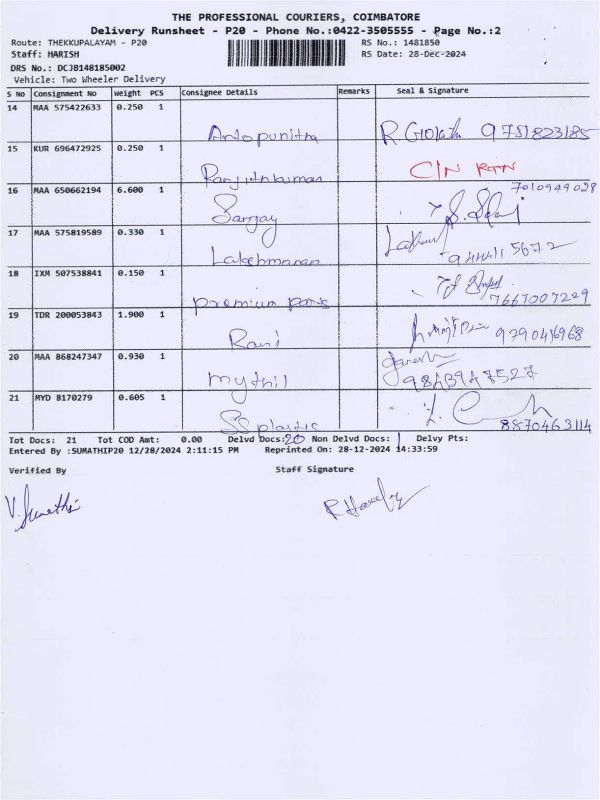 THE PROFESSIONAL COURIERS, COIMBATORE
Delivery Runsheet - P20 - Phone No.:0422-3505555 - Page No.:2
Route: THEKKUPALAYAM - P20 RS No.: 1481850
Staff: HARISH RS Date: 28-Dec-2024
DRS No.: DCJB148185002
Vehicle: Two Wheeler Delivery
S No Consignment No Weight PCS Consignee Details Remarks Seal & Signature
14 MAA 575422633 0.250 1
Antopunitha 9751823185
15 KUR 696472925 0.250 1
Ranjithkumar C/N
16 MAA 650662194 6.600 1 7010949028
Sanjay
17 MAA 575819589 0.330 1
Lakshmanan 9444115672
18 IXM 507538841 0.150 1
premium parts 7667007229
19 TDR 200053843 1.900 1
Rani 9790416968
20 MAA 868247347 0.930 1
mythil 9843947527
21 MYD 8170279 0.605 1
SS plastic 8870463114
Tot Docs: 21 Tot COD Amt: 0.00 Delvd Docs:20 Non Delvd Docs: 1 Delvy Pts:
Entered By :SUMATHIP20 12/28/2024 2:11:15 PM Reprinted On: 28-12-2024 14:33:59
Verified By Staff Signature
V. Sumathi